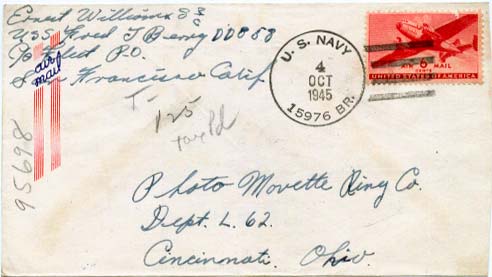 Ernest Williams S 2/c
USS Fred T Berry DD 858
C/o Fleet P.O.
San Francisco Calif
air
mail
U. S. NAVY
4
OCT
1945
15976 BR.
AIR 6 MAIL
CENTS
UNITED STATES OF AMERICA
T-
125
Tax Pd
95698
Photo Movette Ring Co.
Dept. L. 62.
Cincinnati, Ohio.